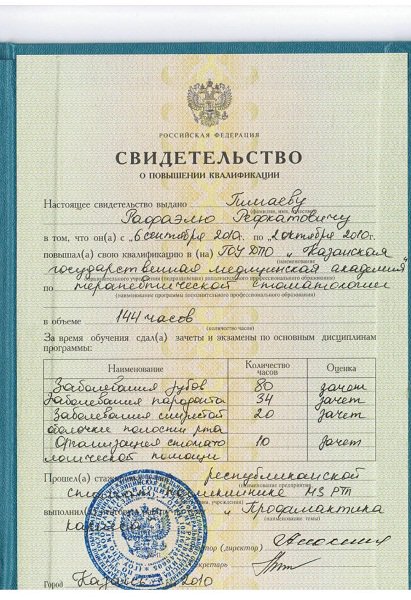 РОССИЙСКАЯ ФЕДЕРАЦИЯ
СВИДЕТЕЛЬСТВО
О ПОВЫШЕНИИ КВАЛИФИКАЦИИ
Настоящее свидетельство выдано Гимаеву
(фамилия, имя, отчество)
Рафаэлю Рефкатовичу
в том, что он(а) с 6 сентября 2010г. по 2 октября 2010г.
повышал(а) свою квалификацию в (на) ГОУ ДПО „Казанская
(наименование
государственная медицинская академия"
образовательного учреждения (подразделения) дополнительного профессионального образования)
по терапевтической стоматологии
(наименование программы дополнительного профессионального образования)
в объеме 144 часов
(количество часов)
За время обучения сдал(а) зачеты и экзамены по основным дисциплинам
программы:
Наименование Количество часов Оценка
Заболевания зубов 80 зачет
Заболевания пародонта 34 зачет
Заболевания слизистой оболочки полости рта 20 зачет
Организация стоматологической помощи 10 зачет
Прошел(а) республиканской
(наименование предприятия,
МЗ РТ
выполнил(а) „Профилактика
(наименование темы)
(директор)
Город Казань 2010